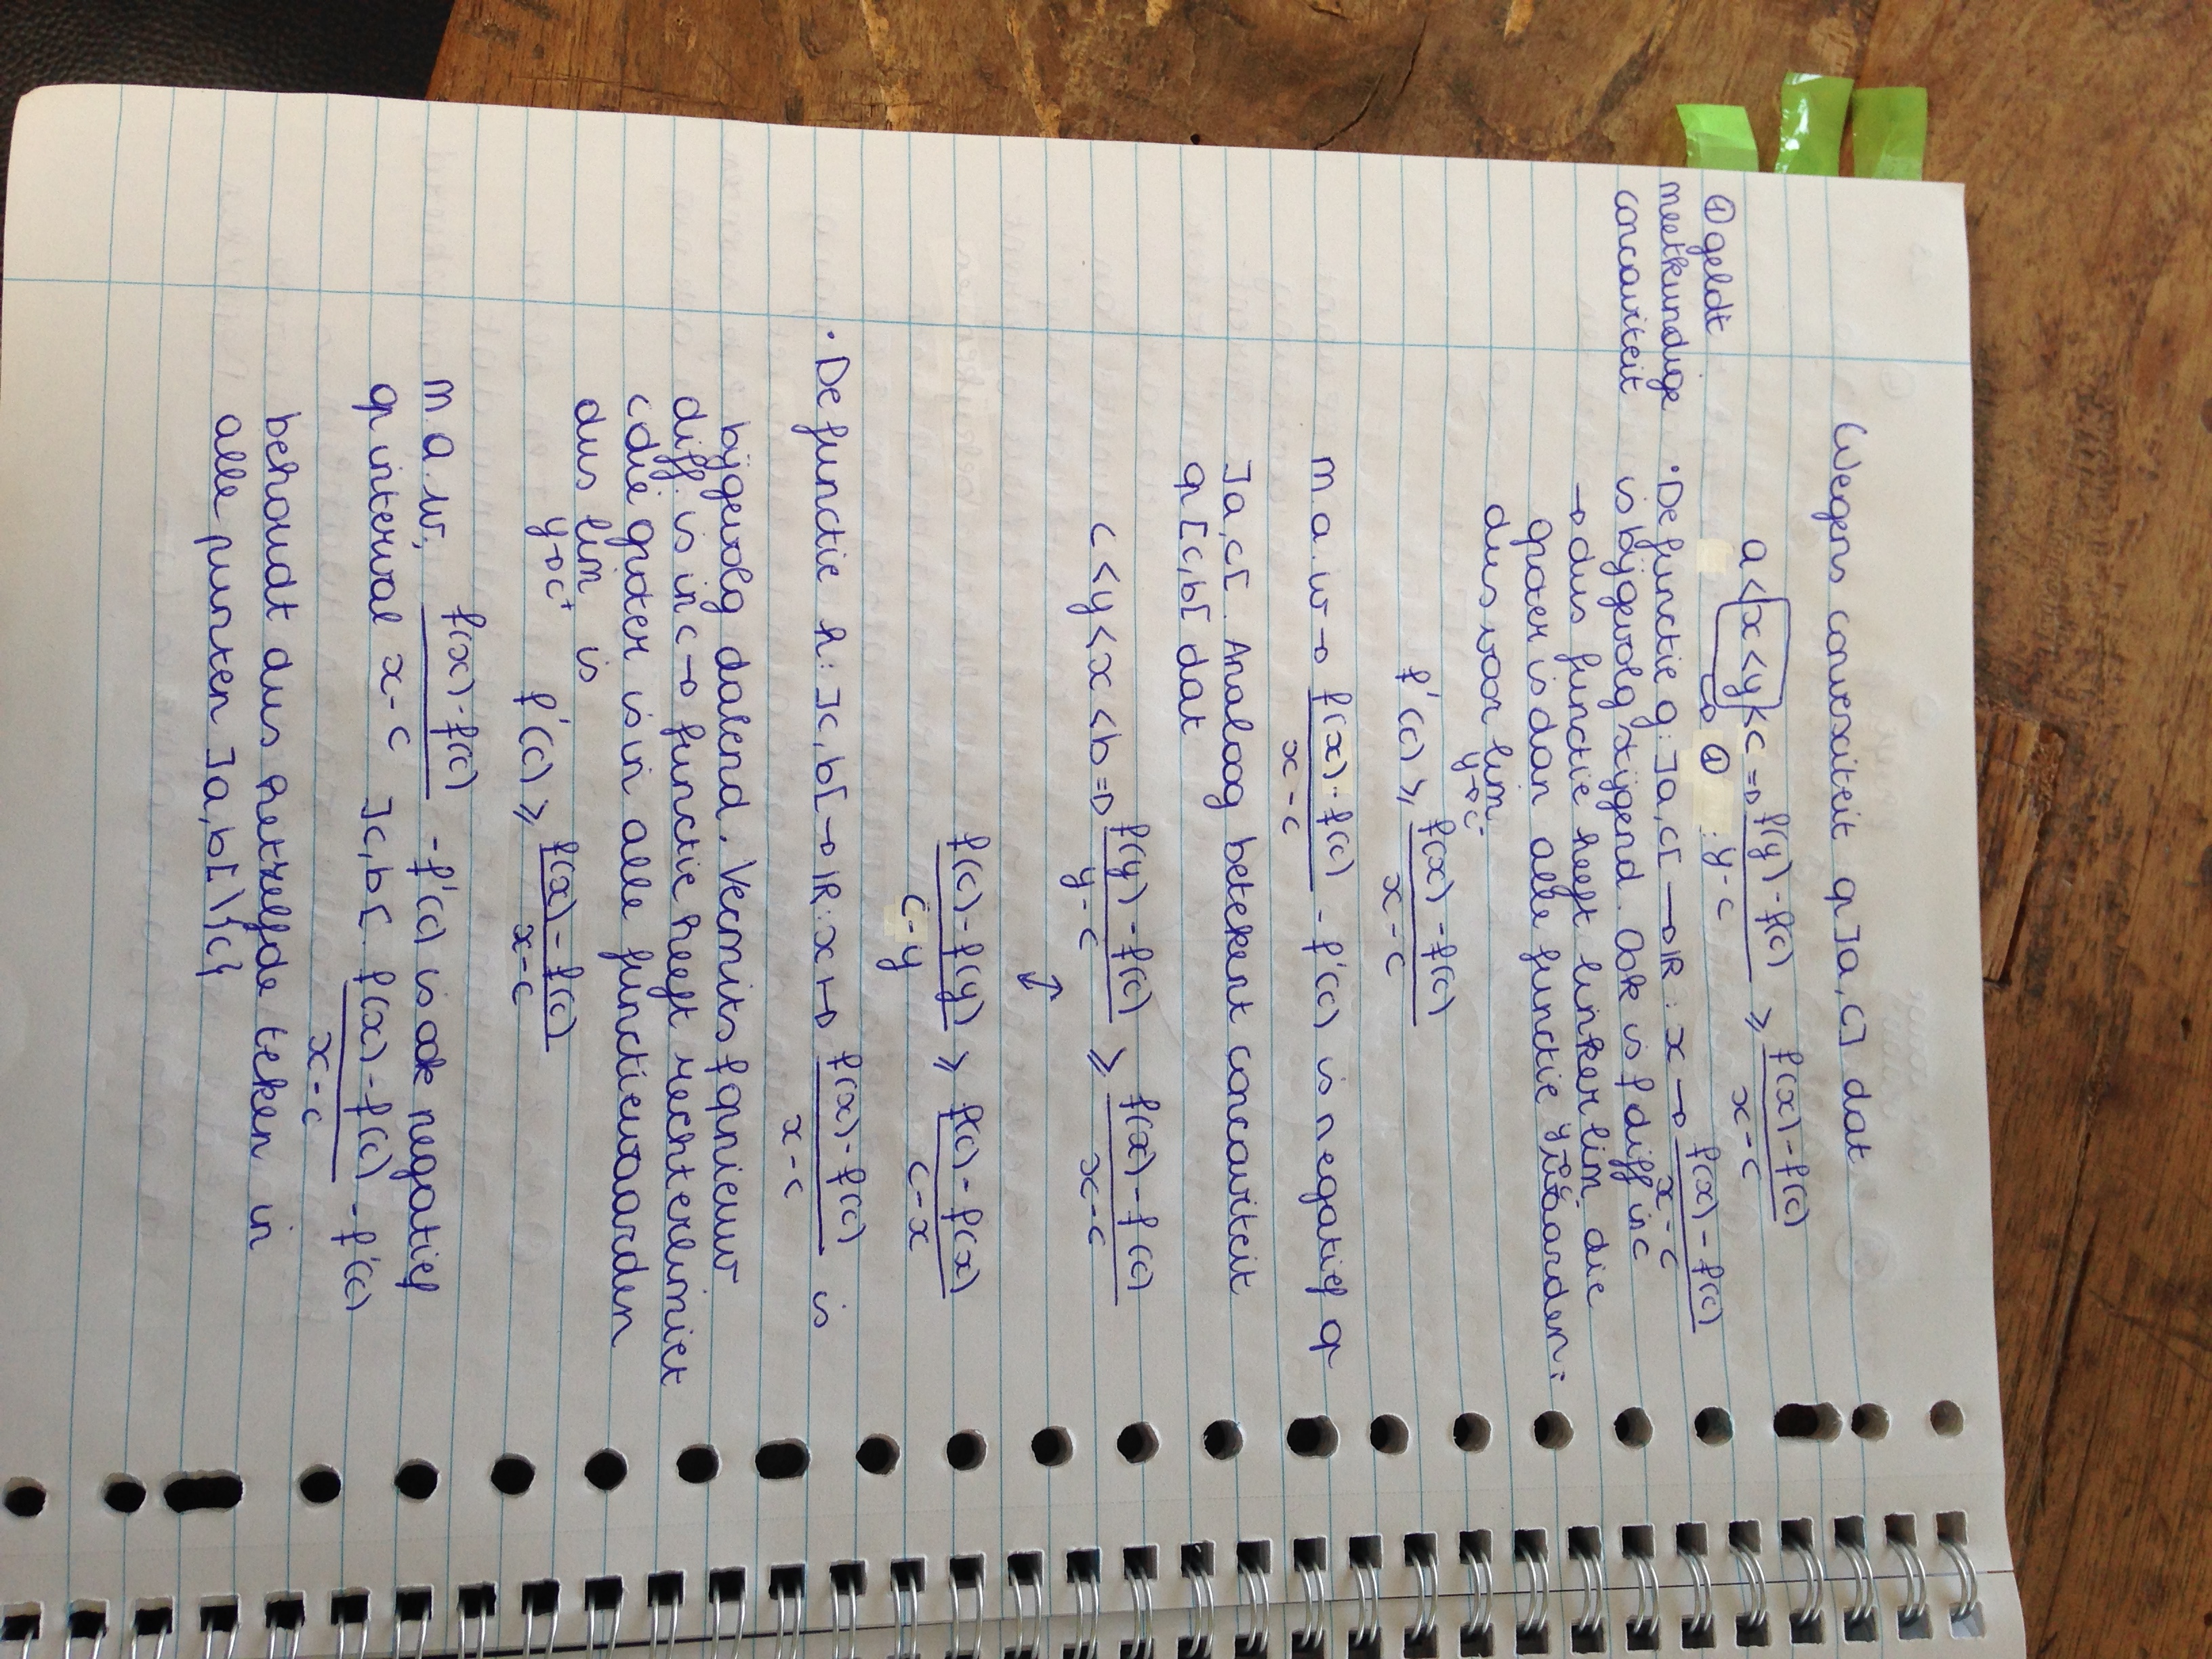 Wegens convexiteit op ]a,c] dat
a < x < y < c ⇒ (f(y) - f(c))/(y - c) ≥ (f(x) - f(c))/(x - c)
⇒ ① :
① geldt
meetkundige
concaviteit
• De functie g: ]a,c[ → IR : x → (f(x) - f(c))/(x - c)
is bijgevolg stijgend. Ook is f diff in c
→ dus functie heeft linker lim y→c⁻ die
groter is dan alle functie waarden:
dus voor lim y→c⁻
f'(c) ≥ (f(x) - f(c))/(x - c)
m.a.w → (f(x) - f(c))/(x - c) - f'(c) is negatief op
]a,c[. Analoog betekent concaviteit
op [c,b[ dat
c < y < x < b ⇒ (f(y) - f(c))/(y - c) ≥ (f(x) - f(c))/(x - c)
↕
(f(c) - f(y))/(c - y) ≥ (f(c) - f(x))/(c - x)
• De functie h: ]c,b[ → IR : x ↦ (f(x) - f(c))/(x - c) is
bijgevolg dalend. Vermits f opnieuw
diff. is in c → functie heeft rechterlimiet
c die groter is in alle functiewaarden
dus lim y→c⁺ is
f'(c) ≥ (f(x) - f(c))/(x - c)
m.a.w, (f(x) - f(c))/(x - c) - f'(c) is ook negatief
op interval ]c,b[. (f(x) - f(c))/(x - c) - f'(c)
behoudt dus hetzelfde teken in
alle punten ]a,b[\{c}